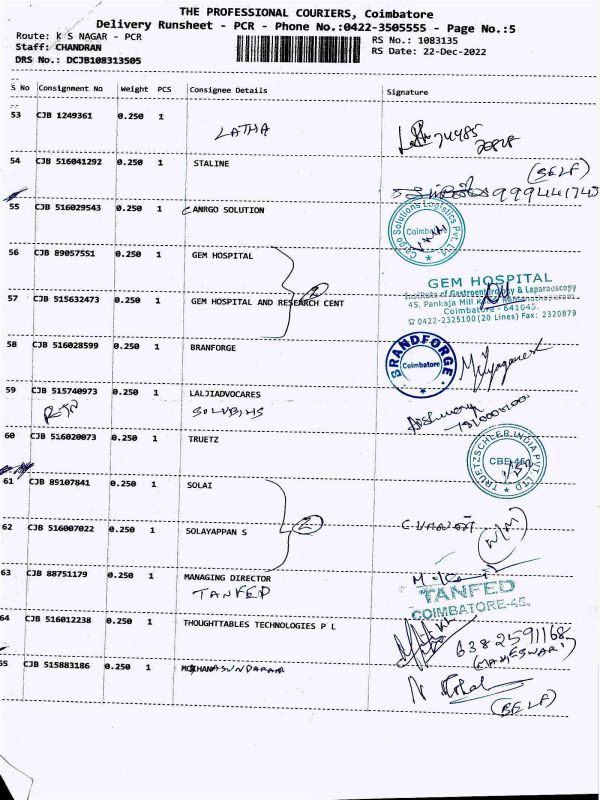 THE PROFESSIONAL COURIERS, Coimbatore
Delivery Runsheet - PCR - Phone No.:0422-3505555 - Page No.:5
Route: K S NAGAR - PCR
Staff: CHANDRAN
DRS No.: DCJB108313505
RS No.: 1083135
RS Date: 22-Dec-2022
S No Consignment No Weight PCS Consignee Details Signature
53 CJB 1249361 0.250 1
LATHA
54 CJB 516041292 0.250 1 STALINE
(SELF)
9994441745
55 CJB 516029543 0.250 1 CANRGO SOLUTION
Cargo Solutions Logistics Pvt. Ltd.
Coimbatore
56 CJB 89057551 0.250 1 GEM HOSPITAL
2
GEM HOSPITAL
Institute of Gastroenterology & Laparascopy
45, Pankaja Mill Road, Ramanathapuram
Coimbatore - 641045.
0422-2325100 (20 Lines) Fax: 2320879
57 CJB 515632473 0.250 1 GEM HOSPITAL AND RESEARCH CENT
58 CJB 516028599 0.250 1 BRANFORGE
BRANDFORGE
Coimbatore
59 CJB 515740973 0.250 1 LALJIADVOCARES
60 CJB 516020073 0.250 1 TRUETZ
TRUETZSCHLER INDIA PVT LTD
CBE-45
61 CJB 89107841 0.250 1 SOLAI
2
62 CJB 516007022 0.250 1 SOLAYAPPAN S
63 CJB 88751179 0.250 1 MANAGING DIRECTOR
TANFED
TANFED
COIMBATORE-45.
64 CJB 516012238 0.250 1 THOUGHTTABLES TECHNOLOGIES P L
6382591168
(MAHESWARI)
65 CJB 515883186 0.250 1 MOHANASUNDARAM
(SELF)